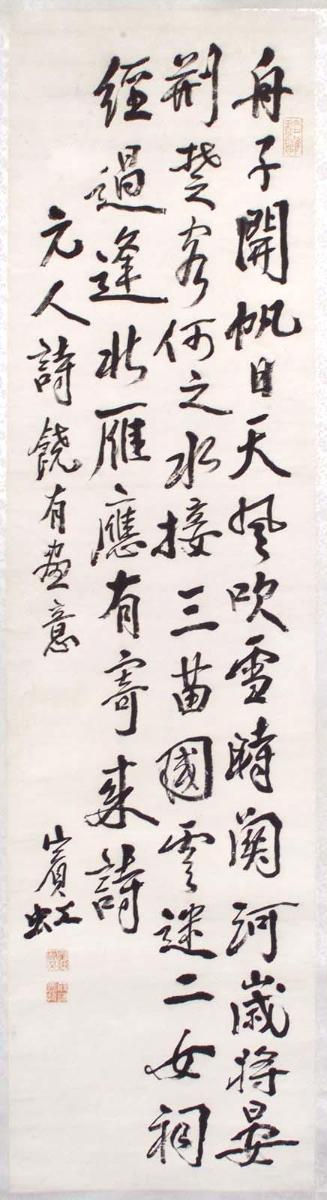 舟子開帆日天風吹雪時關河歲將晏
荆楚客何之水接三苗國雲迷二女祠
經過逢北雁應有寄來詩
元人詩饒有畫意
賓虹